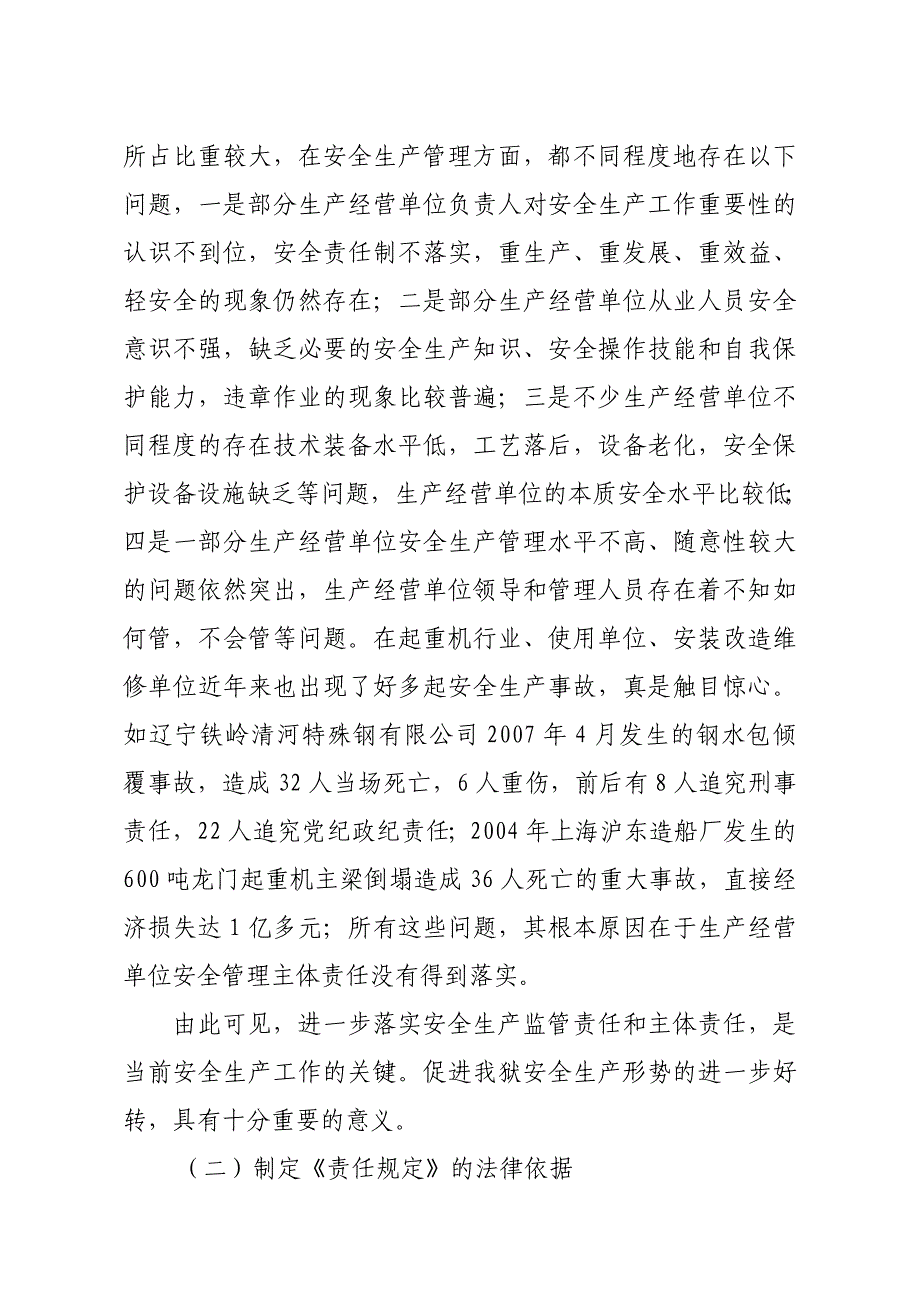 所占比重较大，在安全生产管理方面，都不同程度地存在以下
问题，一是部分生产经营单位负责人对安全生产工作重要性的
认识不到位，安全责任制不落实，重生产、重发展、重效益、
轻安全的现象仍然存在；二是部分生产经营单位从业人员安全
意识不强，缺乏必要的安全生产知识、安全操作技能和自我保
护能力，违章作业的现象比较普遍；三是不少生产经营单位不
同程度的存在技术装备水平低，工艺落后，设备老化，安全保
护设备设施缺乏等问题，生产经营单位的本质安全水平比较低；
四是一部分生产经营单位安全生产管理水平不高、随意性较大
的问题依然突出，生产经营单位领导和管理人员存在着不知如
何管，不会管等问题。在起重机行业、使用单位、安装改造维
修单位近年来也出现了好多起安全生产事故，真是触目惊心。
如辽宁铁岭清河特殊钢有限公司 2007 年 4 月发生的钢水包倾
覆事故，造成 32 人当场死亡，6 人重伤，前后有 8 人追究刑事
责任，22 人追究党纪政纪责任；2004 年上海沪东造船厂发生的
600 吨龙门起重机主梁倒塌造成 36 人死亡的重大事故，直接经
济损失达 1 亿多元；所有这些问题，其根本原因在于生产经营
单位安全管理主体责任没有得到落实。
由此可见，进一步落实安全生产监管责任和主体责任，是
当前安全生产工作的关键。促进我狱安全生产形势的进一步好
转，具有十分重要的意义。
（二）制定《责任规定》的法律依据